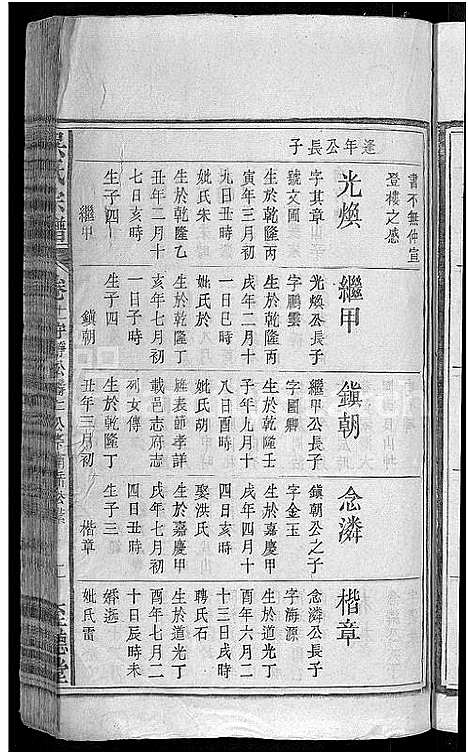 書不無仲宣
登樓之感
逢年公長子
光煥
字其章
號文圃
生於乾隆丙
寅年三月初
九日丑時
妣氏朱
生於乾隆乙
丑年二月十
七日亥時
生子四
繼甲
繼甲
光煥公長子
字鵬雲
生於乾隆丙
戌年二月十
一日巳時
妣氏於
生於乾隆丁
亥年七月初
一日子時
生子四
鎮朝
鎮朝
繼甲公長子
字國卿
生於乾隆壬
子年九月十
八日酉時
妣氏胡
旌表節孝詳
載邑志府志
列女傳
生於乾隆丁
丑年三月初
念潾
鎮朝公之子
字金玉
生於嘉慶甲
戌年四月十
四日亥時
娶洪氏
生於嘉慶甲
戌年七月初
四日丑時
生子三
楷章
楷章
念潾公長子
字海源
生於道光丁
酉年六月二
十三日戌時
聘氏石
生於道光丁
酉年七月二
十日辰時未
婚逝
妣氏雷
吳氏宗譜
卷十
至德堂